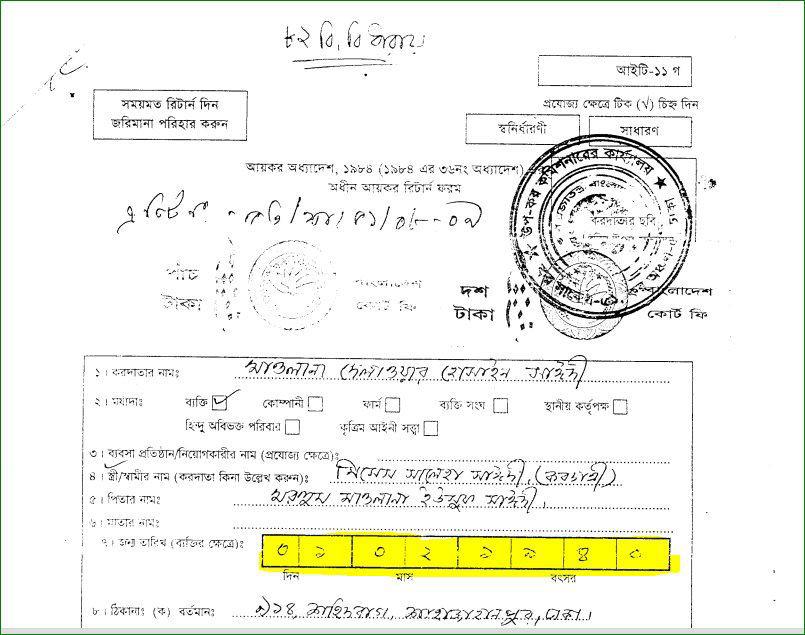 ৮২ বি, বি ধারায়
আইটি-১১ গ
সময়মত রিটার্ন দিন
জরিমানা পরিহার করুন
প্রযোজ্য ক্ষেত্রে টিক (√) চিহ্ন দিন
স্বনির্ধারণী
সাধারণ
আয়কর অধ্যাদেশ, ১৯৮৪ (১৯৮৪ এর ৩৬নং অধ্যাদেশ)
অধীন আয়কর রিটার্ন ফরম
উপ-কর কমিশনারের কার্যালয়
করদাতার ছবি
পাঁচ
টাকা
বাংলাদেশ
কোর্ট ফি
দশ
টাকা
বাংলাদেশ
কোর্ট ফি
১। করদাতার নামঃ মাওলানা দেলাওয়ার হোসাইন সাঈদী
২। মর্যাদাঃ ব্যক্তি কোম্পানী ফার্ম ব্যক্তি সংঘ স্থানীয় কর্তৃপক্ষ
হিন্দু অবিভক্ত পরিবার কৃত্রিম আইনী সত্ত্বা
৩। ব্যবসা প্রতিষ্ঠান/নিয়োগকারীর নাম (প্রযোজ্য ক্ষেত্রে)ঃ
৪। স্ত্রী/স্বামীর নাম (করদাতা কিনা উল্লেখ করুন)ঃ মিসেস সালেহা সাঈদী,
৫। পিতার নামঃ মরহুম মাওলানা ইউসুফ সাঈদী,
৬। মাতার নামঃ
৭। জন্ম তারিখ (ব্যক্তির ক্ষেত্রে)ঃ ০ ১ ০ ২ ১ ৯ ৪ ০
দিন মাস বৎসর
৮। ঠিকানাঃ (ক) বর্তমানঃ ৯১৪, শহিদবাগ, শাহজাহানপুর, ঢাকা।